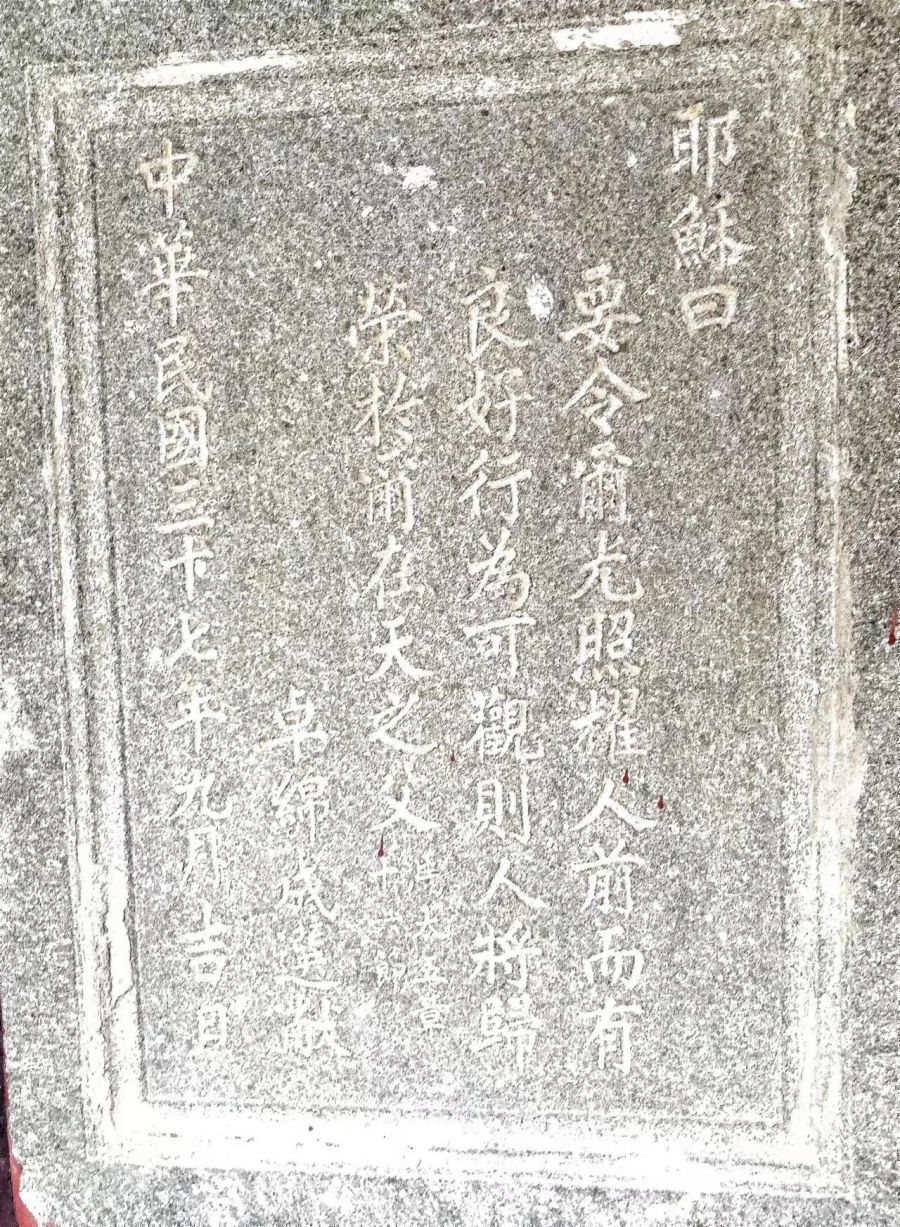 耶穌曰
要令爾光照耀人前而有
良好行為可觀則人將歸
榮於爾在天之父
馬太五章
十六節
卓綿成選獻
中華民國三十七年九月吉日